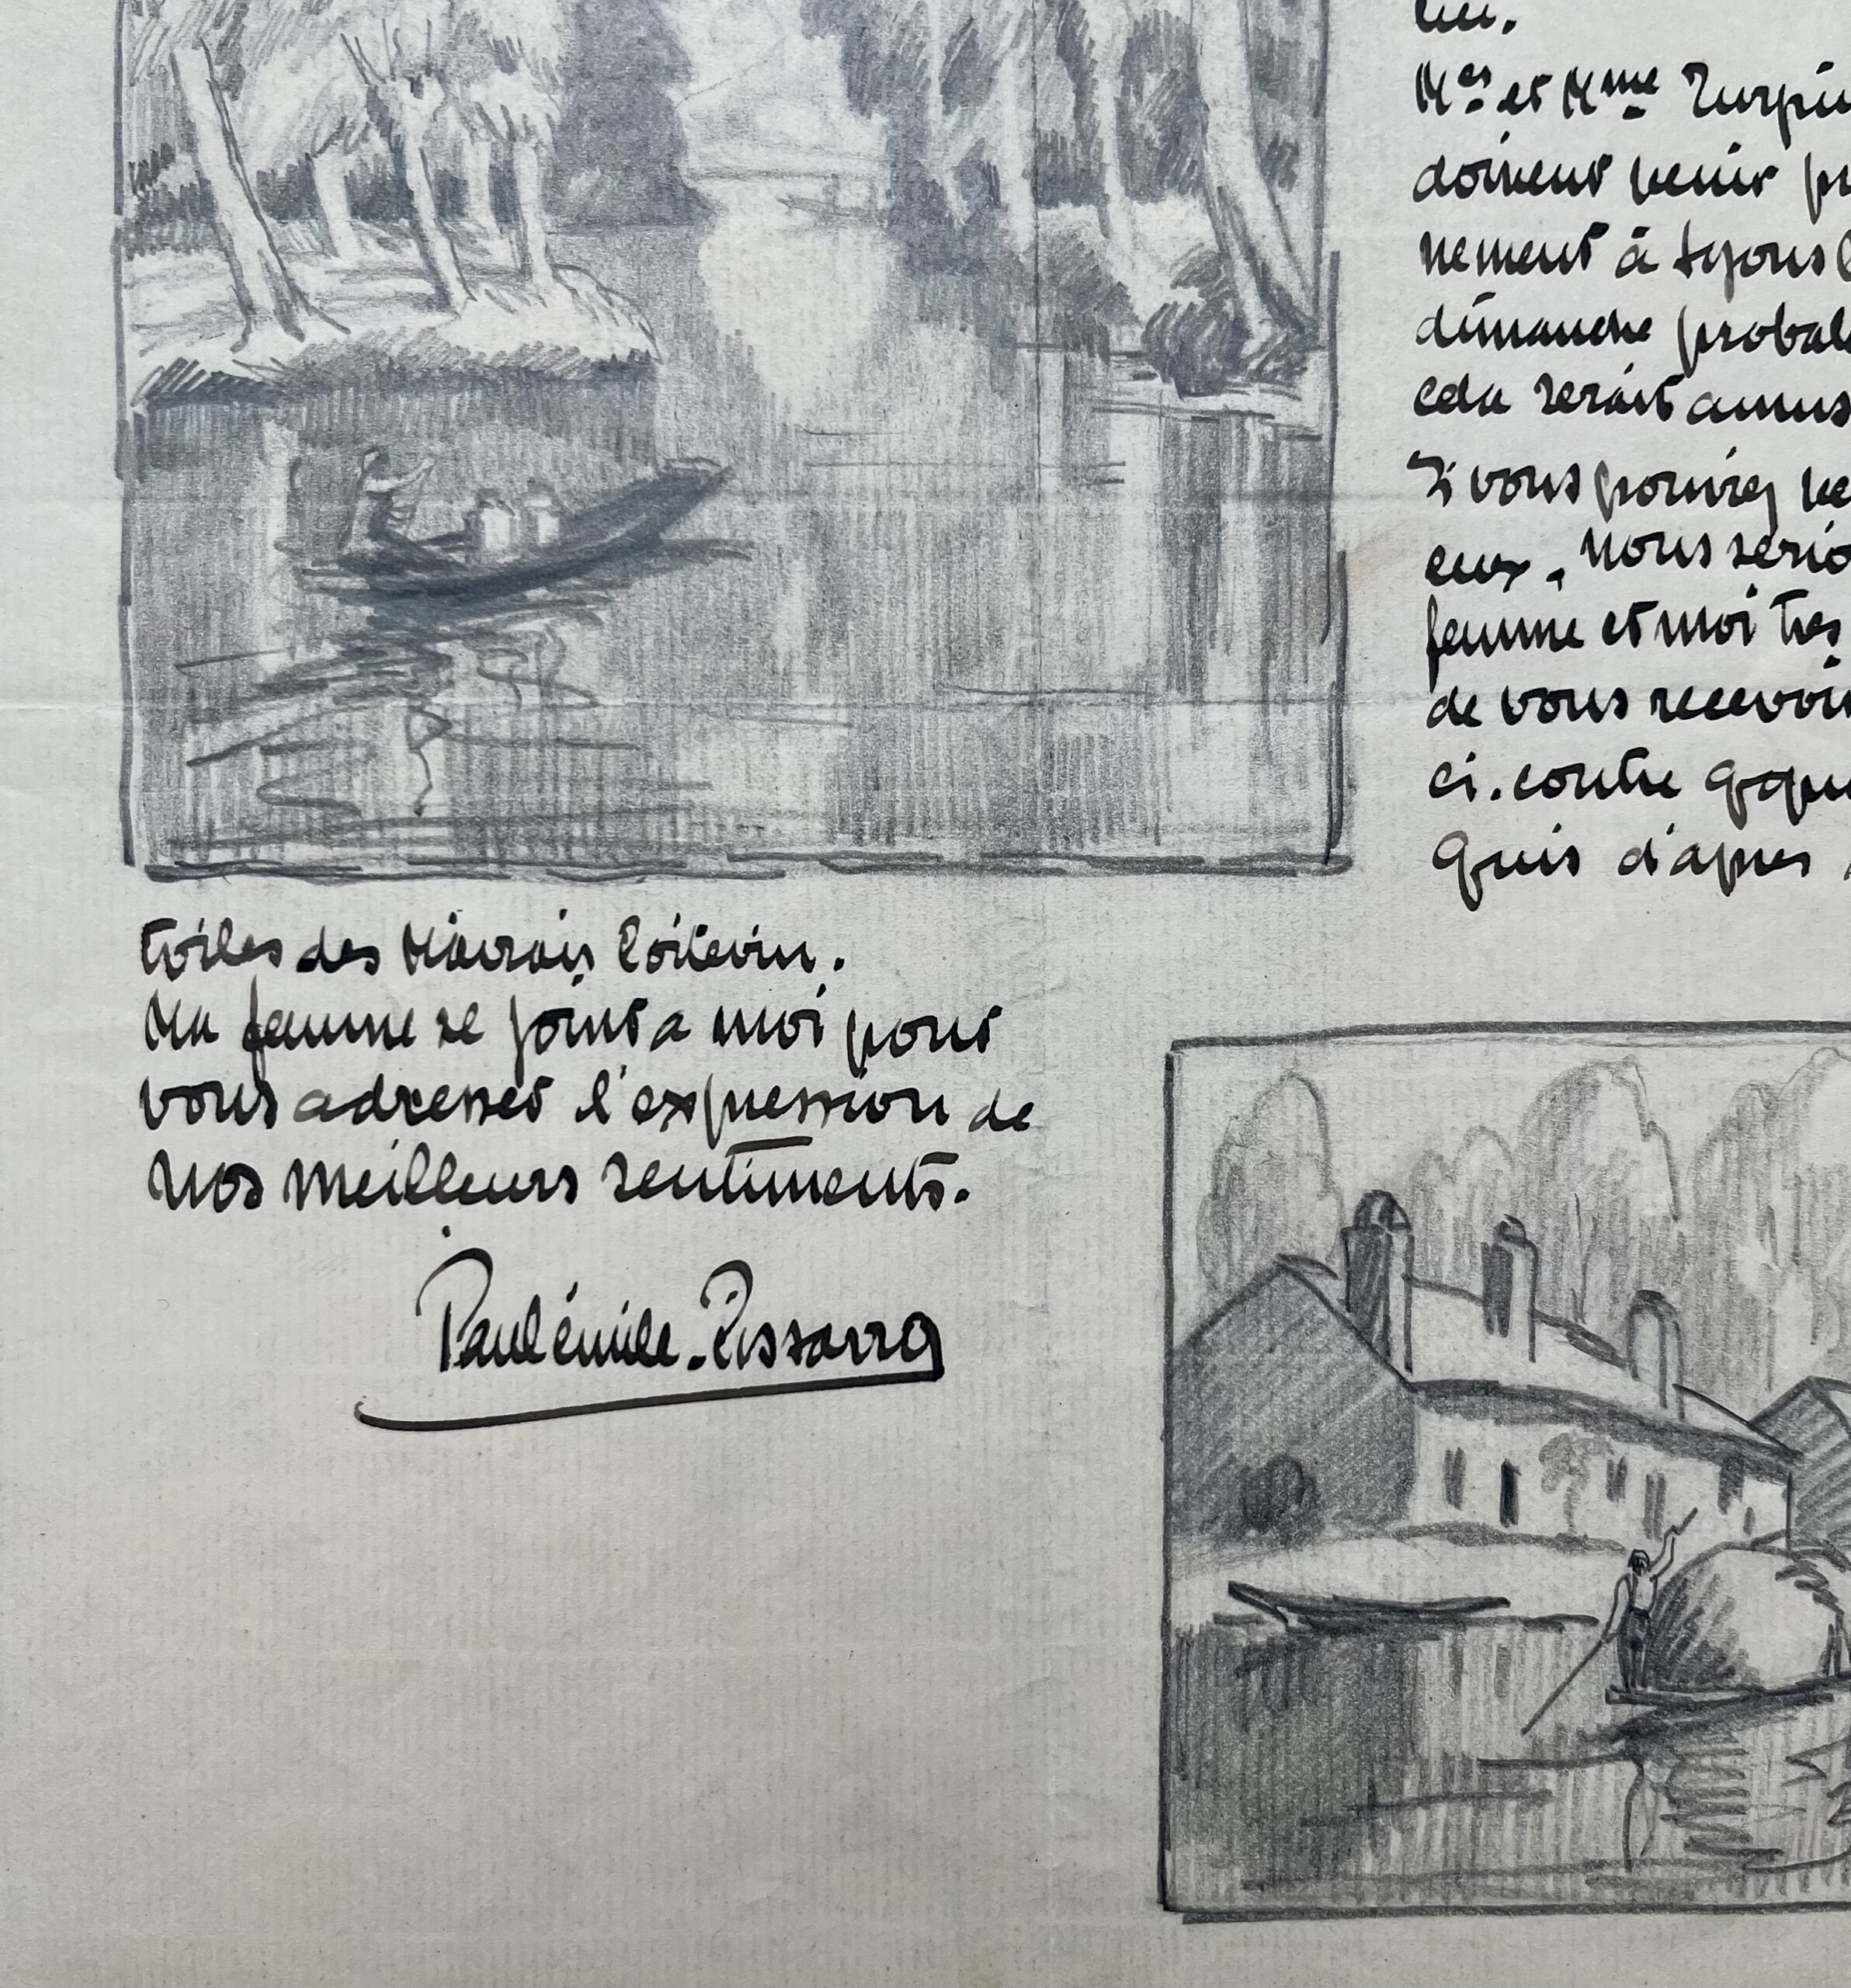 lieu.
Mr et Mme Turpin
doivent venir pr
nement à Lyons l
dimanche probabl
cela serait amus
Si vous pouviez ve
eux, nous serio
femme et moi tres
de vous recevoir
ci-contre qqu
quis d'apres
toiles des Marais Poitevin.
Ma femme se joint a moi pour
vous adresser l'expression de
nos meilleurs sentiments.
Paulémile-Pissarro